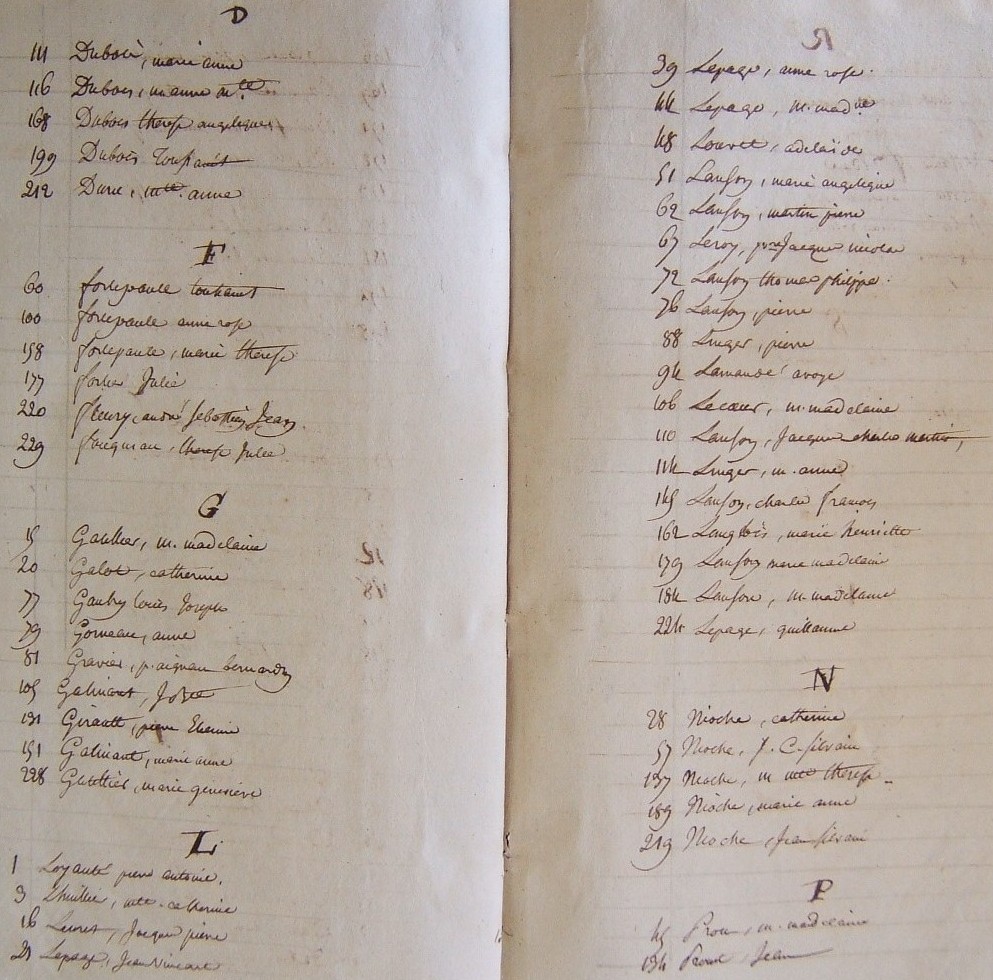 D
111 Dubois, marie anne
116 Dubois, m anne
168 Dubois therese angelique
199 Dubois Toussaint
212 anne
F
60 fortepaule toussaint
100 fortepaule anne rose
158 fortepaule, marie therese
177 Julie
220 fleury, andré Sebastien Jean
229 therese Julie
G
15 Gaultier, m. madelaine
20 Galot, catherine
77 Gaubry louis Joseph
79 Gorneau, anne
81 Gravier, p. aignan bernard
105 Galinant,
131 Girault, pierre Etienne
151 Galinant, marie anne
228 Gaulthier, marie genevieve
L
1 Loyauté pierre antoine.
3 Lhuillier, catherine
16 Jacque pierre
21 Lepage, Jean Vincent
R
39 Lepage, anne rose.
44 Lepage, m. mad.ne
48 Louvet, adelaide
51 Lanson, marie angelique
62 Lanson, martin pierre
67 Leroy, Jacque nicolas
72 Lanson thomas philippe.
76 Lanson, pierre
88 Linger, pierre
94 Lamandé avoye
106 Lecœur, m. madelaine
110 Lanson, Jacque charles martin,
114 Linger, m. anne
145 Lanson, charles francois
162 Langlois, marie henriette
179 Lanson marie madelaine
184 Lanson, m. madelaine
224 Lepage, guillaume
N
28 Nioche, catherine
57 Nioche, J. C. silvain
137 Nioche, m therese
189 Nioche, marie anne
219 Nioche, Jean silvain
P
45 m. madelaine
134 Proust Jean